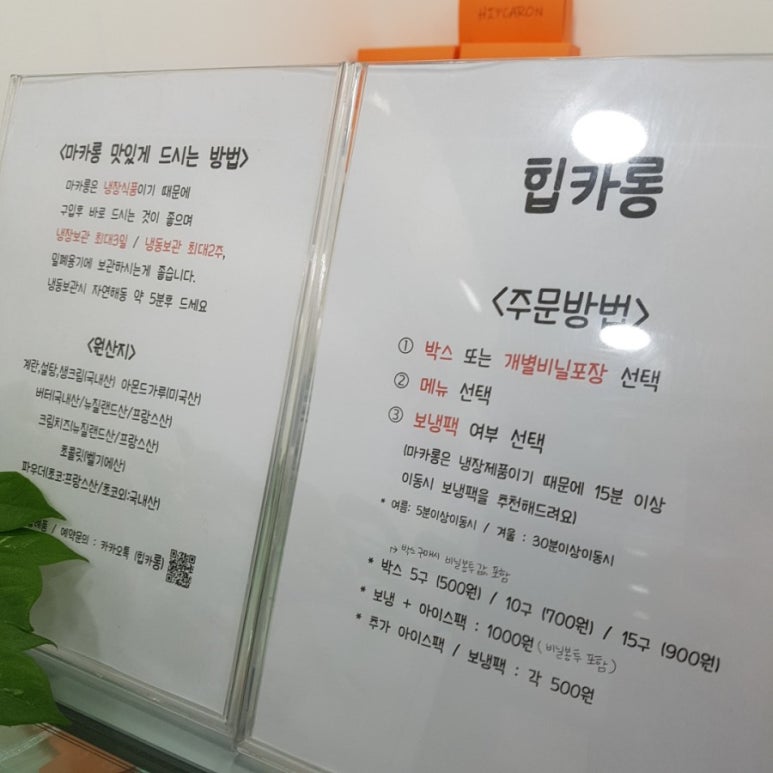 HIYCARON
<마카롱 맛있게 드시는 방법>
마카롱은 냉장식품이기 때문에
구입후 바로 드시는 것이 좋으며
냉장보관 최대3일 / 냉동보관 최대2주,
밀폐용기에 보관하시는게 좋습니다.
냉동보관시 자연해동 약 5분후 드세요
<원산지>
계란,설탕,생크림(국내산) 아몬드가루(미국산)
버터(국내산/뉴질랜드산/프랑스산)
크림치즈(뉴질랜드산/프랑스산)
초콜릿(벨기에산)
파우더(초코:프랑스산/초코외:국내산)
/ 예약문의 : 카카오톡 (힙카롱)
힙카롱
<주문방법>
① 박스 또는 개별비닐포장 선택
② 메뉴 선택
③ 보냉팩 여부 선택
(마카롱은 냉장제품이기 때문에 15분 이상
이동시 보냉팩을 추천해드려요)
* 여름: 5분이상이동시 / 겨울 : 30분이상이동시
↱ 박스 구매시 비닐봉투값 포함
* 박스 5구 (500원) / 10구 (700원) / 15구 (900원)
* 보냉 + 아이스팩 : 1000원 (비닐봉투 포함)
* 추가 아이스팩 / 보냉팩 : 각 500원